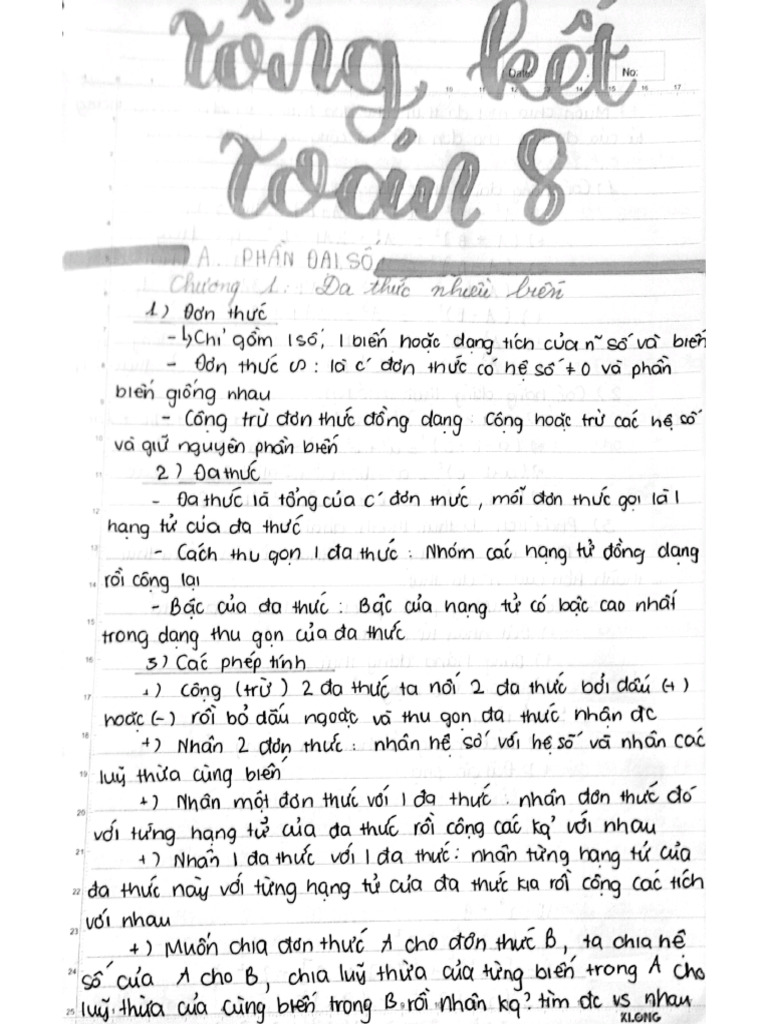 Tổng kết
Date: No:
toán 8
A. PHẦN ĐẠI SỐ
Chương 1: Đa thức nhiều biến
1) Đơn thức
- Chỉ gồm 1 số, 1 biến hoặc dạng tích của n~ số và biến
- Đơn thức ∽: là c' đơn thức có hệ số ≠ 0 và phần
biến giống nhau
- Cộng trừ đơn thức đồng dạng: Cộng hoặc trừ các hệ số
và giữ nguyên phần biến
2) Đa thức
- Đa thức là tổng của c' đơn thức, mỗi đơn thức gọi là 1
hạng tử của đa thức
- Cách thu gọn 1 đa thức: Nhóm các hạng tử đồng dạng
rồi cộng lại
- Bậc của đa thức: Bậc của hạng tử có bậc cao nhất
trong dạng thu gọn của đa thức
3) Các phép tính
+) Cộng (trừ) 2 đa thức ta nối 2 đa thức bởi dấu (+)
hoặc (-) rồi bỏ dấu ngoặc và thu gọn đa thức nhận đc
+) Nhân 2 đơn thức: nhân hệ số với hệ số và nhân các
luỹ thừa cùng biến
+) Nhân một đơn thức với 1 đa thức: nhân đơn thức đó
với từng hạng tử của đa thức rồi cộng các kq' với nhau
+) Nhân 1 đa thức với 1 đa thức: nhân từng hạng tử của
đa thức này với từng hạng tử của đa thức kia rồi cộng các tích
với nhau
+) Muốn chia đơn thức A cho đơn thức B, ta chia hệ
số của A cho B, chia luỹ thừa của từng biến trong A cho
luỹ thừa của cùng biến trong B rồi nhân kq' tìm đc vs nhau
KLONG